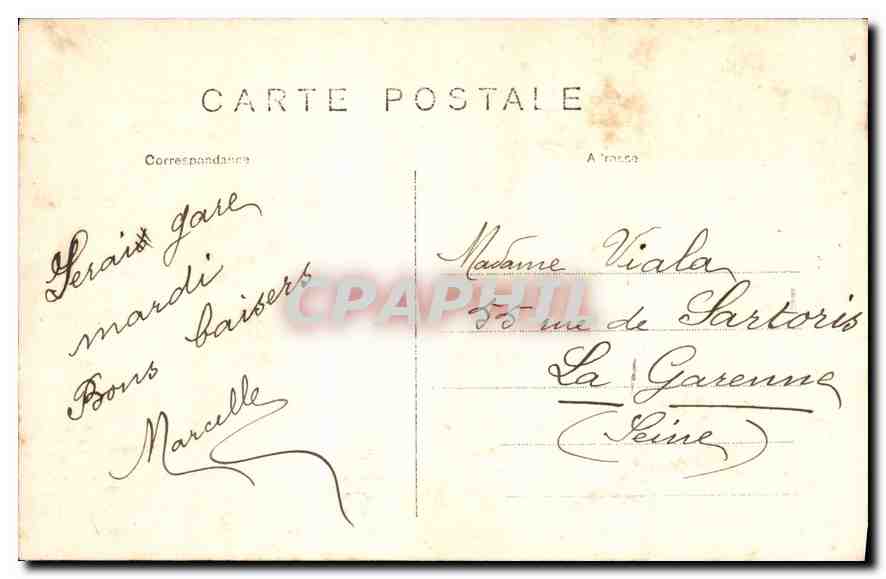 CARTE POSTALE
Correspondance
Adresse
Serais gare
mardi
Bons baisers
Marcelle
Madame Viala
55 rue de Sartoris
La Garenne
(Seine)
CPAPHIL